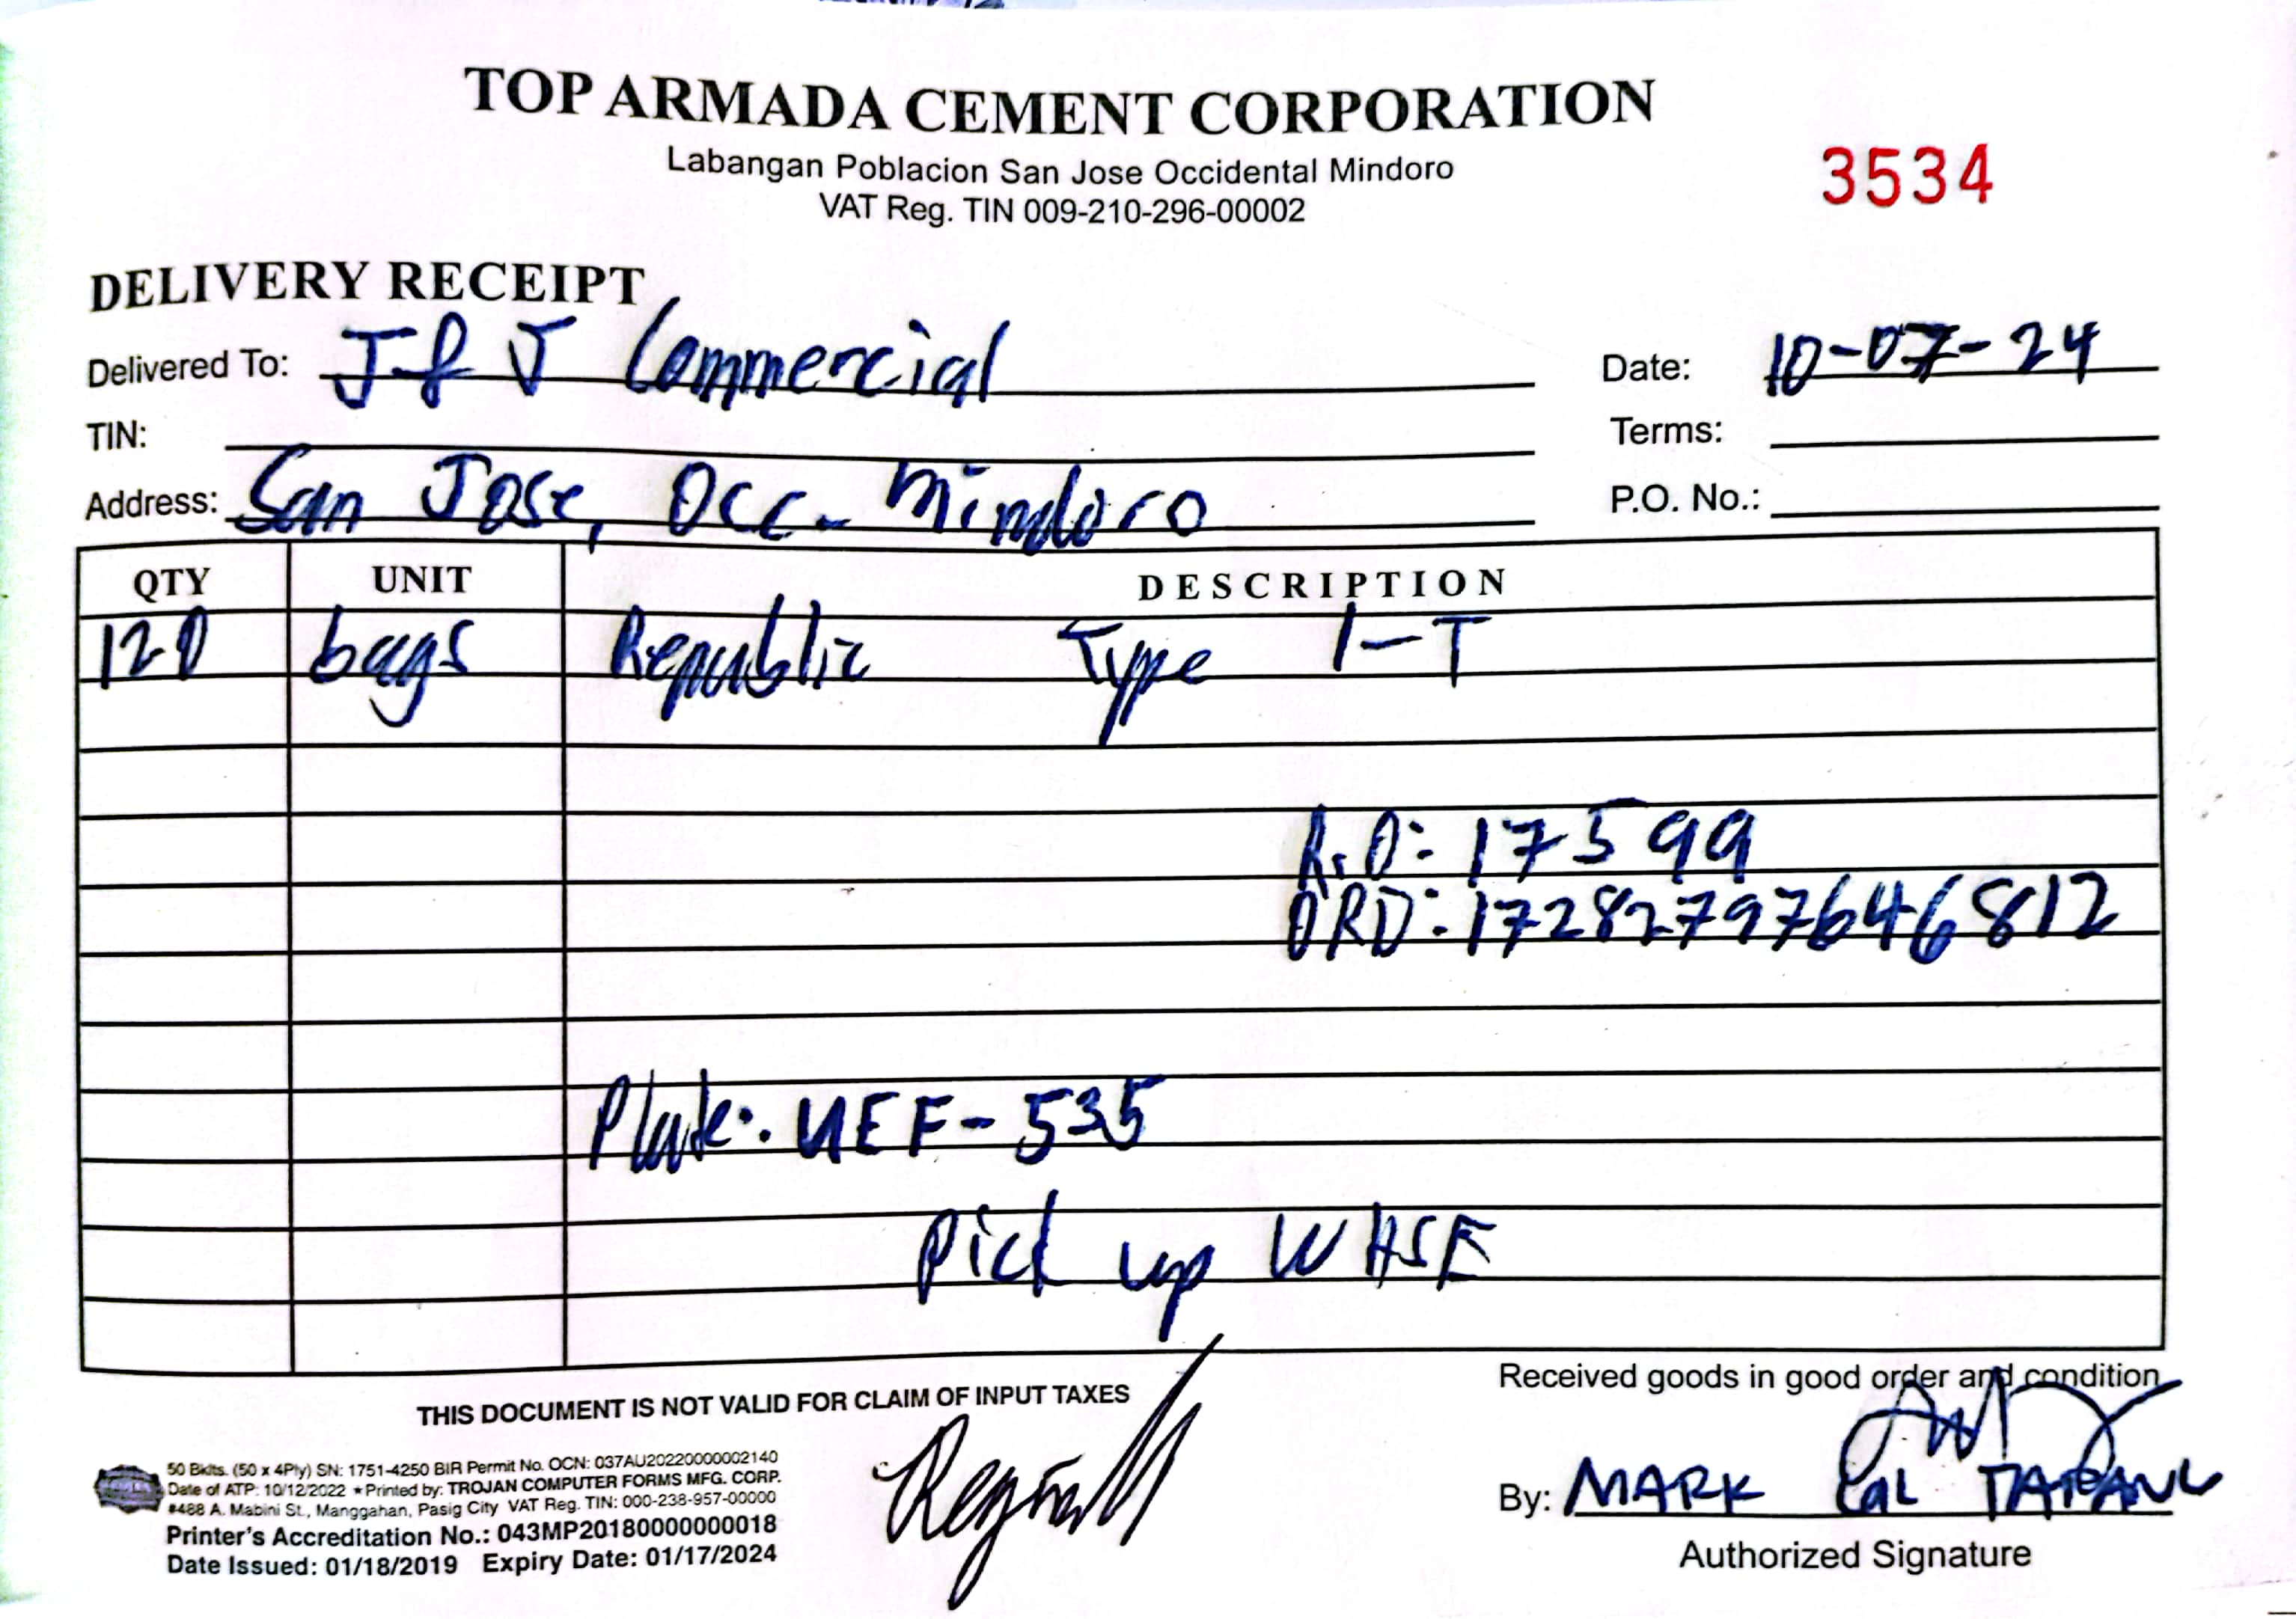 TOP ARMADA CEMENT CORPORATION
Labangan Poblacion San Jose Occidental Mindoro
VAT Reg. TIN 009-210-296-00002
3534
DELIVERY RECEIPT
Delivered To: J & J Commercial
Date: 10-07-24
TIN:
Terms:
Address: San Jose, Occ. Mindoro
P.O. No.:
QTY UNIT DESCRIPTION
120 bags Republic Type 1-T
A.O: 17599
ORD: 17282797646812
Plate: UEF-535
Pick up WHSE
THIS DOCUMENT IS NOT VALID FOR CLAIM OF INPUT TAXES
Received goods in good order and condition
50 Bklts. (50 x 4Ply) SN: 1751-4250 BIR Permit No. OCN: 037AU20220000002140
Date of ATP: 10/12/2022 ★ Printed by: TROJAN COMPUTER FORMS MFG. CORP.
#488 A. Mabini St., Manggahan, Pasig City VAT Reg. TIN: 000-238-957-00000
Printer's Accreditation No.: 043MP20180000000018
Date Issued: 01/18/2019 Expiry Date: 01/17/2024
By: MARK
Authorized Signature